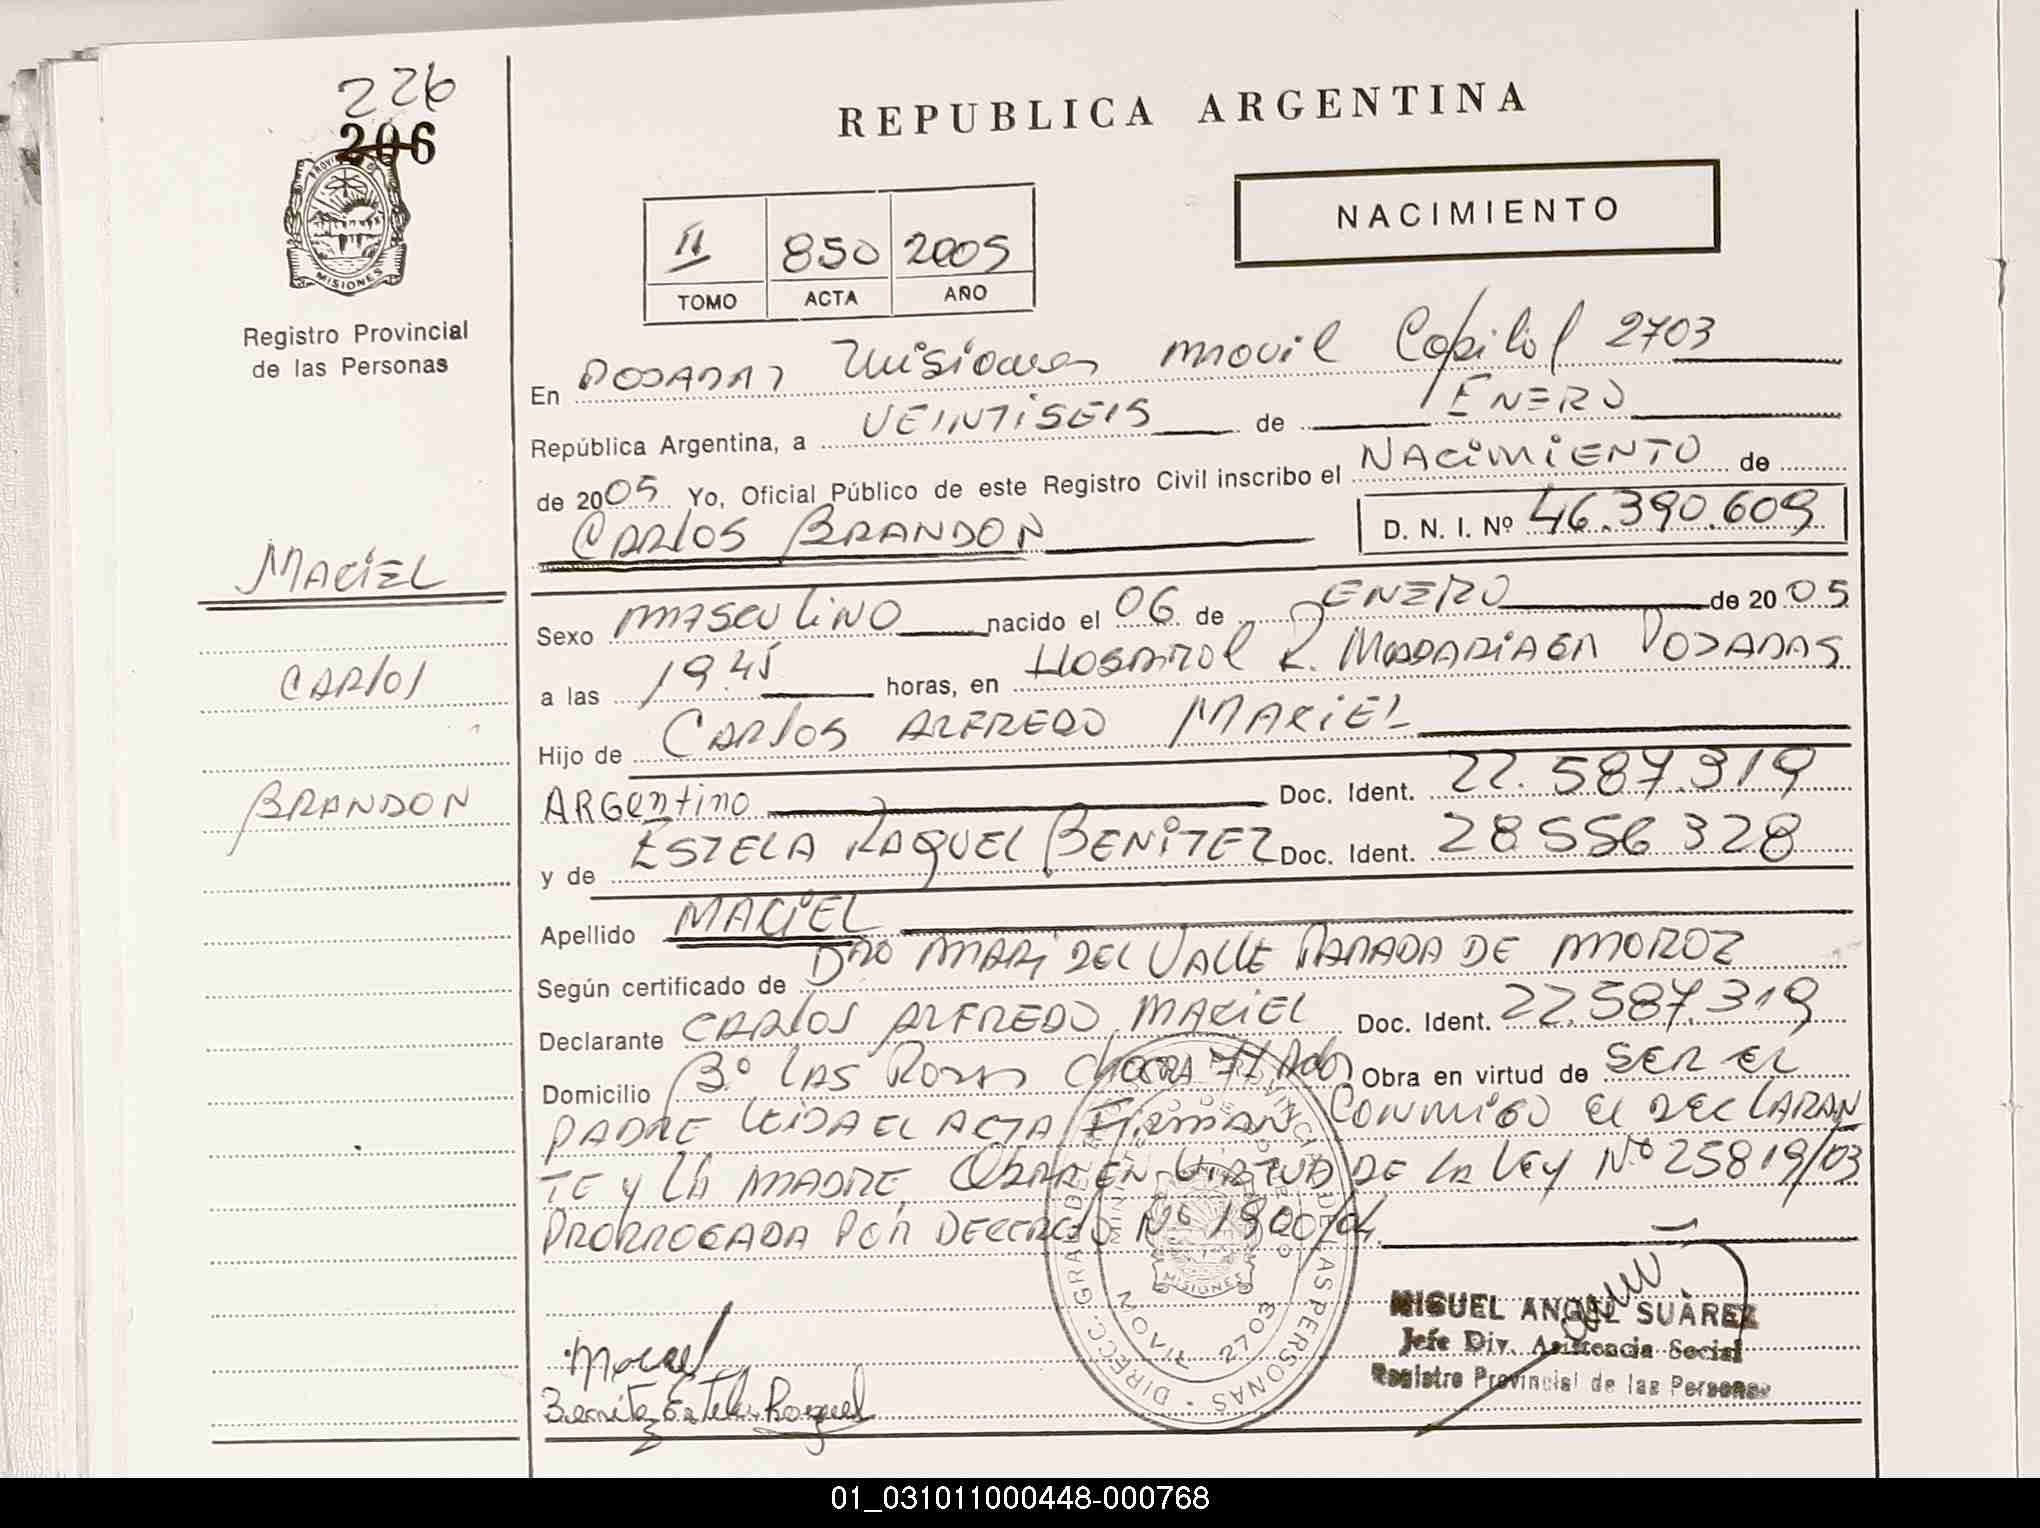 226
206
REPUBLICA ARGENTINA
PROVINCIA DE
MISIONES
Registro Provincial
de las Personas
NACIMIENTO
II 850 2005
TOMO ACTA AÑO
En POSADAS Misiones movil Capital 2703
República Argentina, a VEINTISEIS de ENERO
de 2005 Yo, Oficial Público de este Registro Civil inscribo el NACIMIENTO de
CARLOS BRANDON D. N. I. Nº 46.390.609
MACIEL
CARLOS
BRANDON
Sexo MASCULINO nacido el 06 de ENERO de 2005
a las 19.45 horas, en HOSPITAL R. MADARIAGA POSADAS
Hijo de CARLOS ALFREDO MACIEL
ARGENTINO Doc. Ident. 22.587.319
y de ESTELA RAQUEL BENITEZ Doc. Ident. 28 556 328
Apellido MACIEL
Según certificado de DRA MARI DEL VALLE PARADA DE MOROZ
Declarante CARLOS ALFREDO MACIEL Doc. Ident. 22.587.319
Domicilio Bº LAS ROSAS CHACRA Obra en virtud de SER EL
PADRE LEIDA EL ACTA FIRMAN CONMIGO EL DECLARAN
TE Y LA MADRE. OBRA EN VIRTUD DE LA LEY Nº 25819/03
PRORROGADA POR DECRETO Nº 1900/04.
MOVIL 2703
MISIONES
MIGUEL ANGEL SUÀREZ
Jefe Div. Asistencia Social
Registro Provincial de las Personas
Maciel
Benitez Estela Raquel
01_031011000448-000768